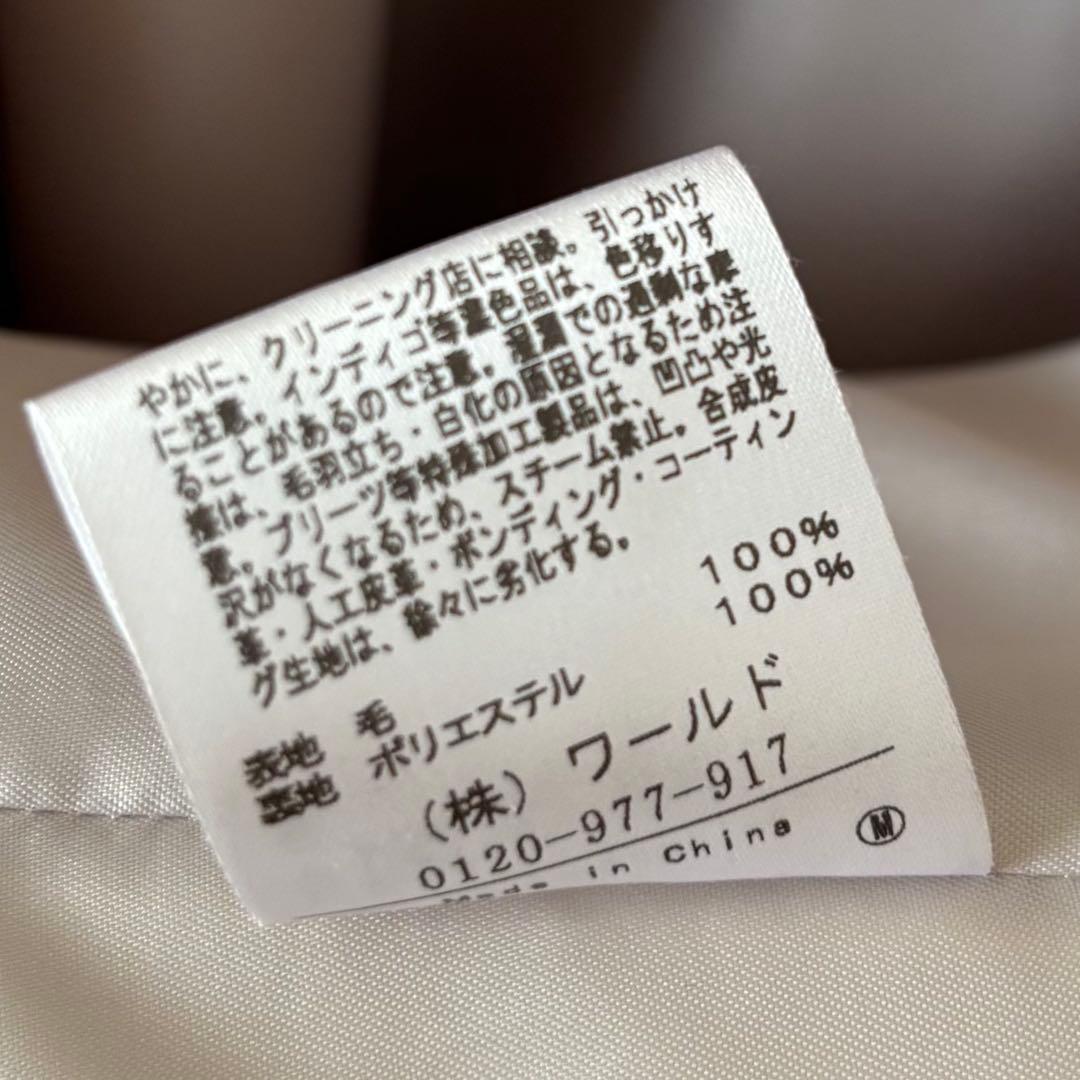 やかに、クリーニング店に相談。引っかけ
に注意。インディゴ等濃色品は、色移りす
ることがあるので注意。湿潤での過剰な摩
擦は、毛羽立ち・白化の原因となるため注
意。プリーツ等特殊加工製品は、凹凸や光
沢がなくなるため、スチーム禁止。合成皮
革・人工皮革・ボンディング・コーティン
グ生地は、徐々に劣化する。
表地 毛 100%
裏地 ポリエステル 100%
(株) ワールド
0120-977-917
Made in China
M